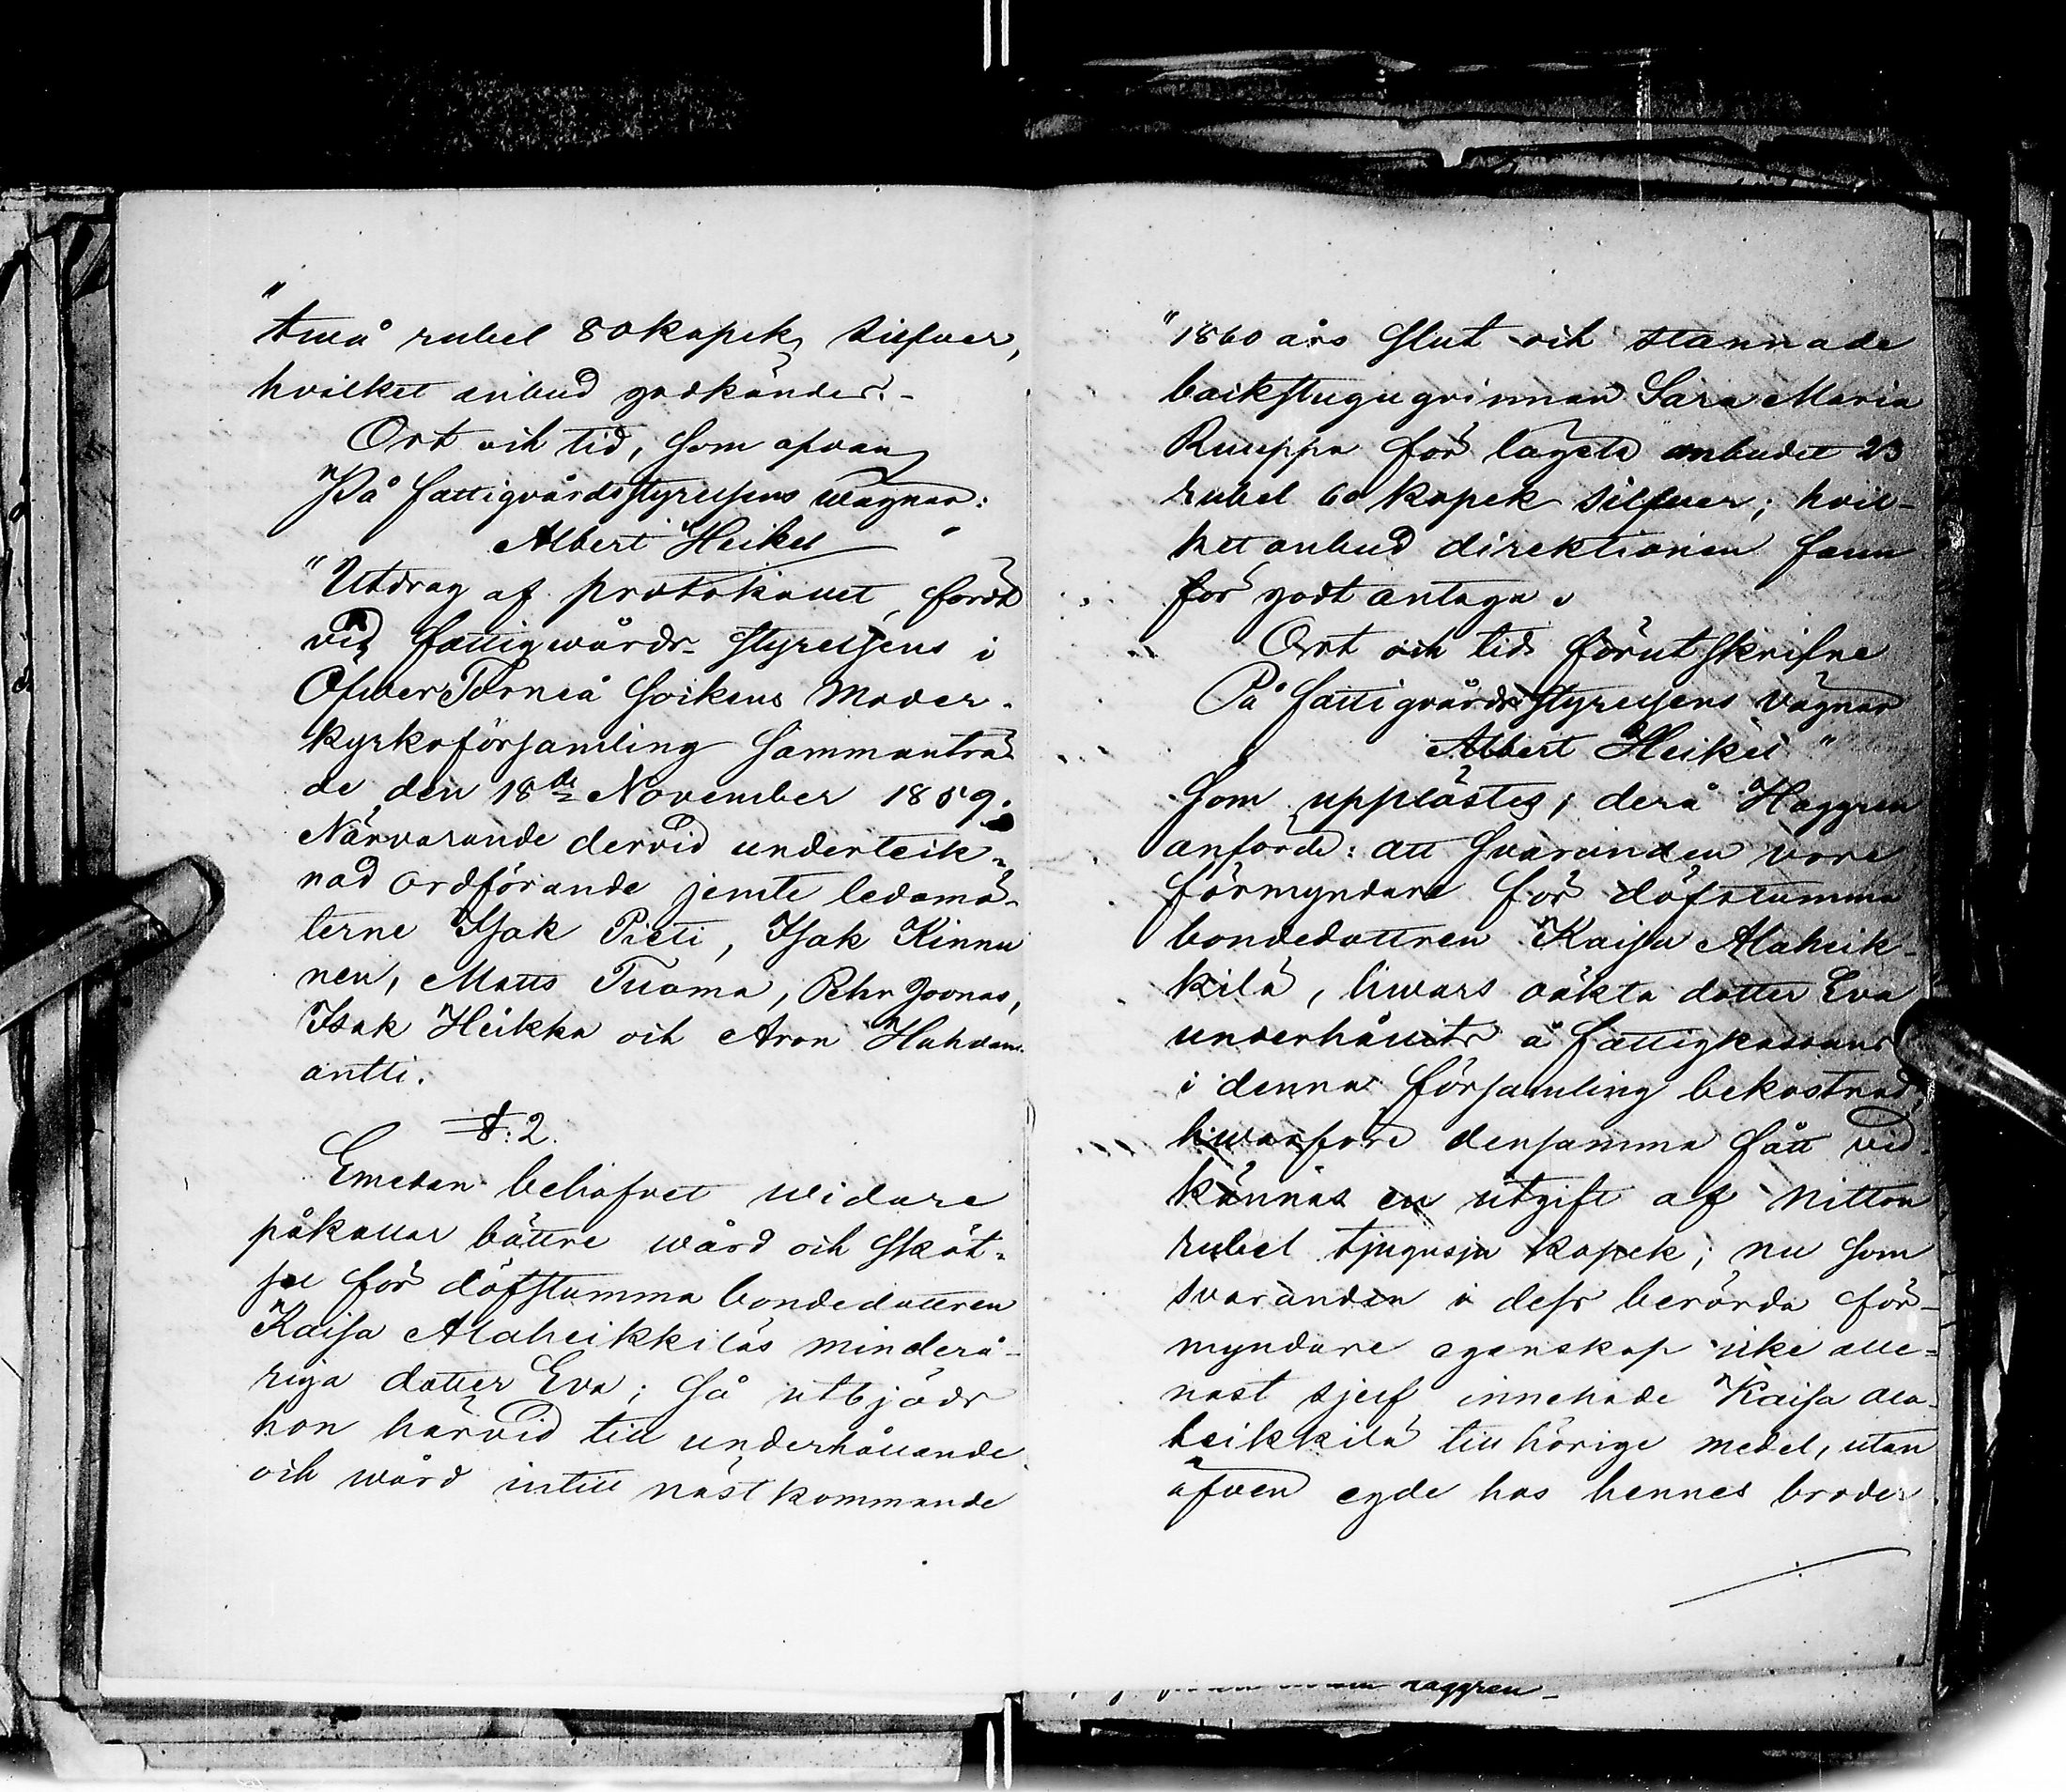 "
twå rubel 80 kopek silfver,
hvilket anbud godkändes.-
Ort och tid, som ofvan
På fattigvårdsstyrelsens wägnar:
Albert Heikel "
"Utdrag af protokollet, fördt
vid fattigwårds-styrelsens i
ÖfwerTorneå sockens Moder-
kyrkoförsamling sammanträ-
de den 18de November 1859.
Närvarande dervid underteck-
nad ordförande jemte ledamö-
terne Isak Pieti, Isak Kinnu
nen, Matts Tuoma, Pehr Joonas,
Isak Heikka och Aron Hahdan
antti.
§: 2.
Emedan behofvet widare
påkallar bättre wård och sköt-
sel för döfstumma bondedottren
Kaisa Alaheikkiläs minderå-
riga dotter Eva; så utbjöds
hon härvid till underhållande
och wård intill nästkommande
"1860 års slut och stannade
backstuguqvinnan Sara Maria
Ruuppa för lägsta anbudet 23
rubel 60 kopek silfver; hvil-
ket anbud direktionen fann
för godt antaga.
Ort och tid förutskrifne
På fattigvårdsstyrelsens vägnar
Albert Heikel "
Som upplästes; derå Häggren
anförde: att Svaranden vore
förmyndare för döfstumma
bondedottren Kaisa Alaheik-
kilä, hwars oäkta dotter Eva
underhållits å fattigkassans
i denna församling bekostnad,
hwarföre densamma fått vid-
kännas en utgift af nitton
rubel tjugusju kopek; nu som
svaranden i dess berörda för-
myndare egenskap icke alle-
nast sjelf innehade Kaisa Ala-
heikkilä tillhörige medel, utan
äfven egde hos hennes broder
räggren